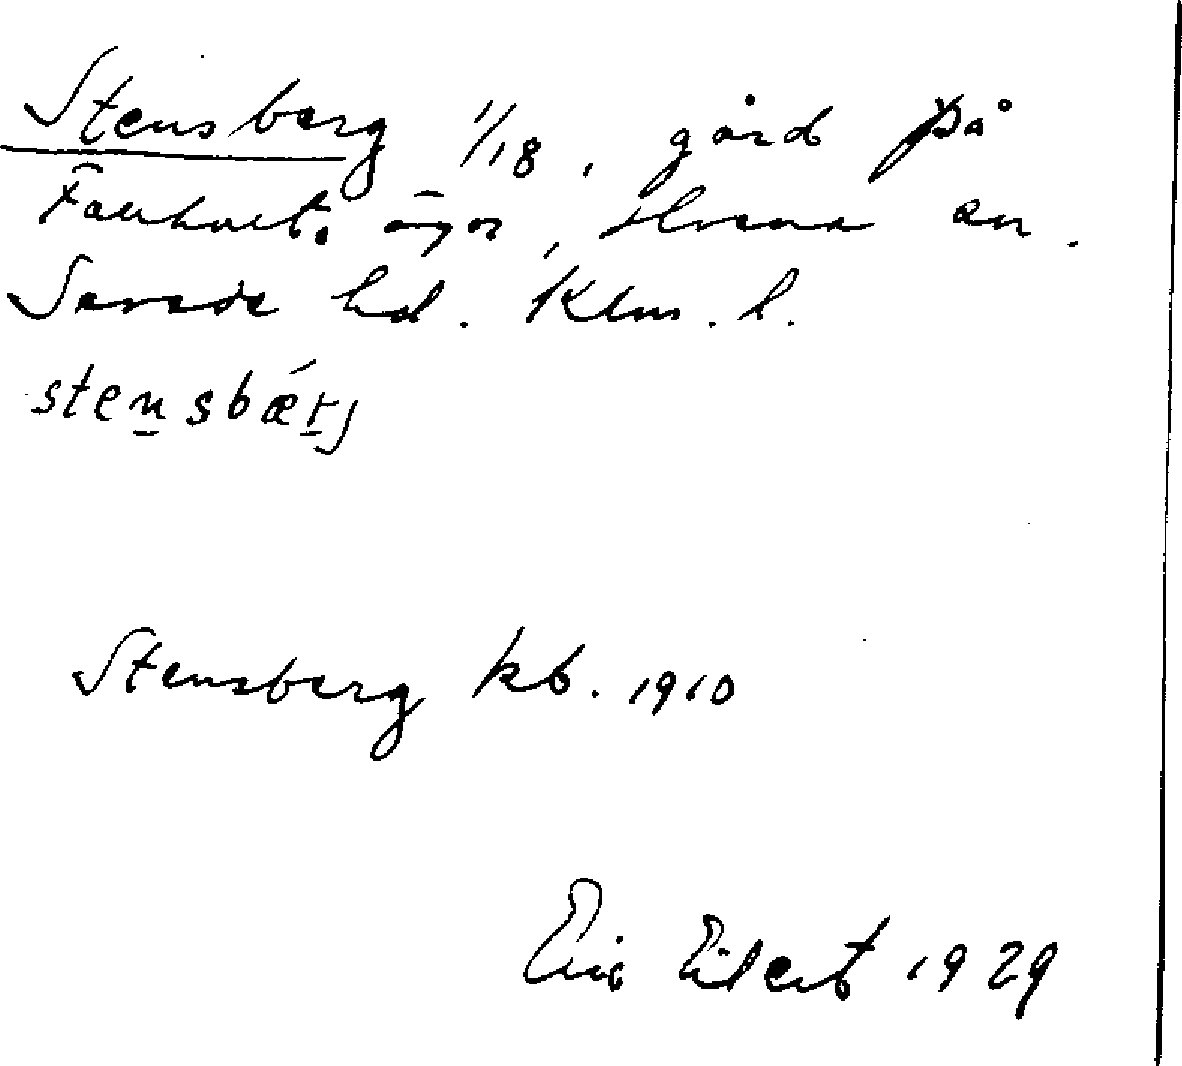 Stensberg 1/18, gård på
ägor, Hvena sn.
Sevede hd. Klm. l.
stensbǽrj
Stensberg kb. 1910
Eric Eilert 1929